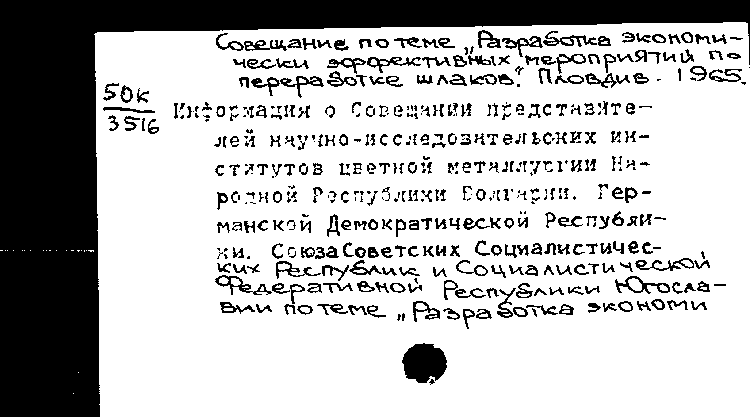 Совещание по теме „Разработка экономи-
чески эффективных мероприятий по
переработке шлаков". Пловдив. 1965.
50к
3516
Информация о Совещании представите-
лей научно-исследовательских ин-
ститутов цветной металлургии На-
родной Республики Болгарии. Гер-
манской Демократической Республи-
ки. Союза Советских Социалистичес-
ких Республик и Социалистической
Федеративной Республики Югосла-
вии по теме „Разработка экономи